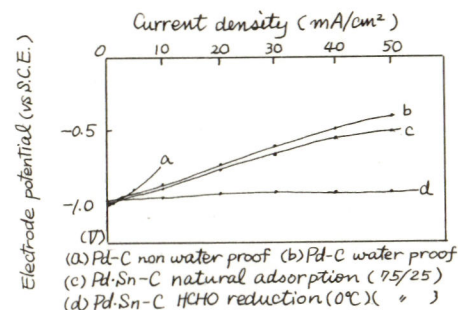 Current density (mA/cm²)
0 10 20 30 40 50
Electrode potential (vs S.C.E.)
-0.5
-1.0
(V)
a
b
c
d
(a) Pd-C non water proof (b) Pd-C water proof
(c) Pd·Sn-C natural adsorption (75/25)
(d) Pd·Sn-C HCHO reduction (0℃) ( 〃 )